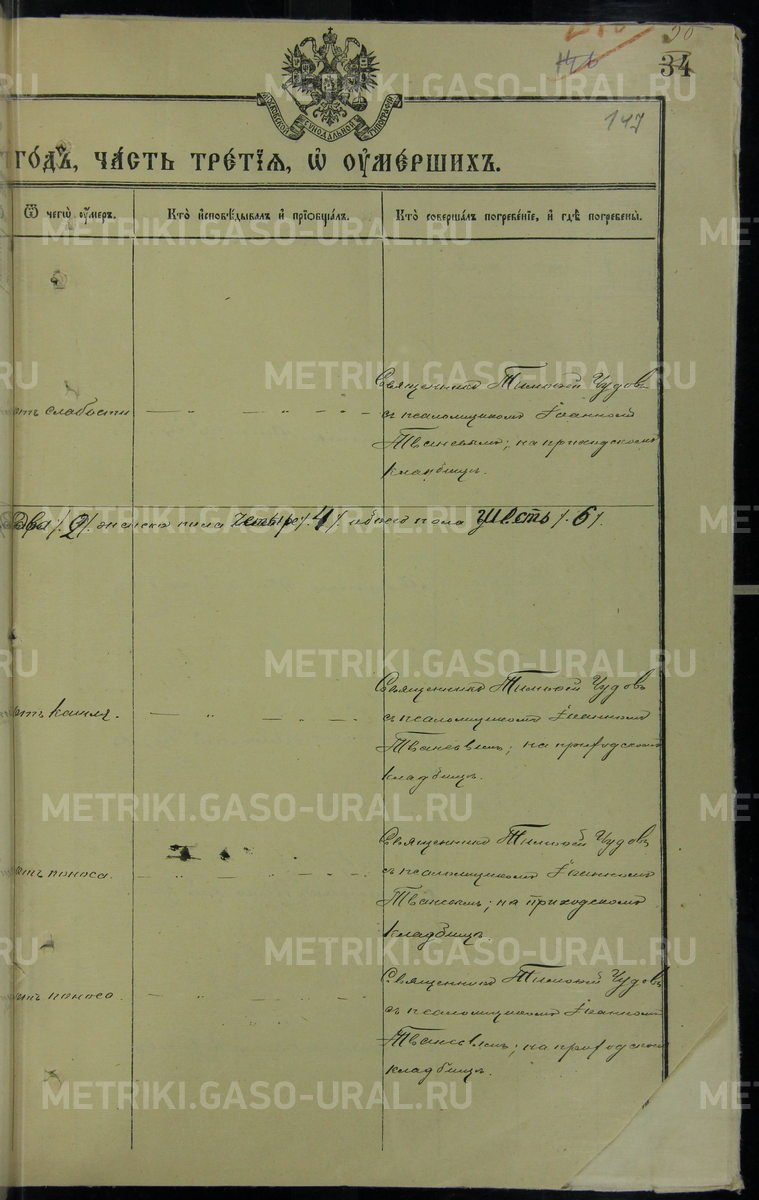 34
147
МОСКОВСКОЙ СУНОДАЛЬНОЙ ТИПОГРАФІИ
го́дъ, ча́сть тре́тїѧ, ѡ҆ оу҆ме́ршихъ.
Ѿ чегѡ̀ оу҆́меръ.
Кто̀ и҆сповѣ́дывалъ и҆ прїѡбща́лъ.
Кто̀ соверша́лъ погребе́нїе, и҆ гдѣ̀ погребены̀.
отъ слабости
Священникъ Тимоѳей Чудовъ
съ псаломщикомъ Іоанномъ
на приходскомъ
кладбищѣ.
Два /.2/. женска пола четыре /.4/. обоего пола шесть /.6/.
отъ кашля.
Священникъ Тимоѳей Чудовъ
съ псаломщикомъ Іоанномъ
на приходскомъ
кладбищѣ.
отъ поноса.
Священникъ Тимоѳей Чудовъ
съ псаломщикомъ Іоанномъ
на приходскомъ
кладбищѣ.
отъ поноса.
Священникъ Тимоѳей Чудовъ
съ псаломщикомъ Іоанномъ
на приходскомъ
кладбищѣ.
METRIKI.GASO-URAL.RU